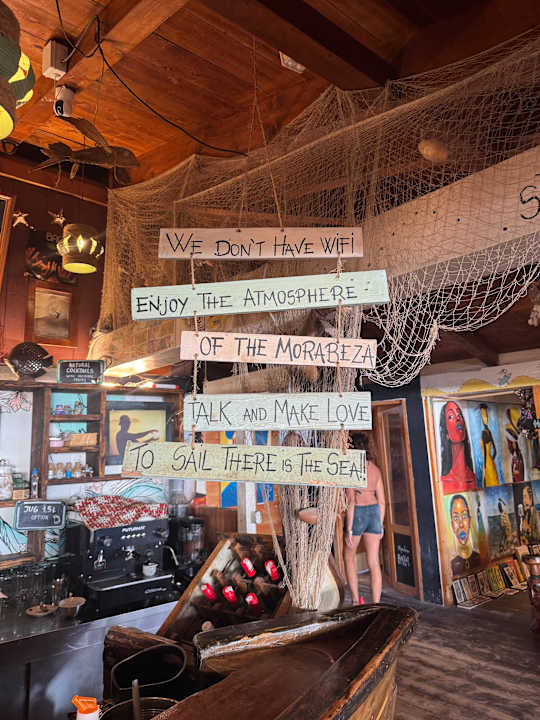 WE DON'T HAVE WIFI
ENJOY THE ATMOSPHERE
OF THE MORABEZA
TALK AND MAKE LOVE
TO SAIL THERE IS THE SEA!
NATURAL
COCKTAILS
JUG 1.5L
OPTION
FUTURMAT
S